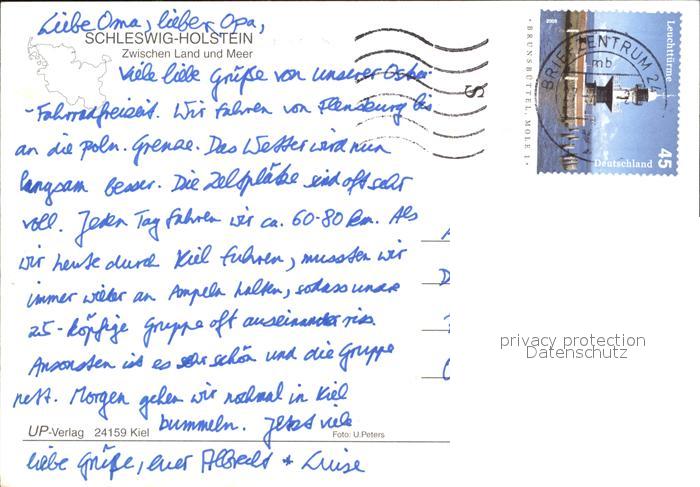 Liebe Oma, lieber Opa,
SCHLESWIG-HOLSTEIN
Zwischen Land und Meer
Viele liebe Grüße von unserer Oster
-Fahrradfreizeit. Wir fahren von Flensburg bis
an die poln. Grenze. Das Wetter wird nun
langsam besser. Die Zeltplätze sind oft sehr
voll. Jeden Tag fahren wir ca. 60-80 km. Als
wir heute durch Kiel fuhren, mussten wir
immer wieder an Ampeln halten, sodass unsere
25-köpfige Gruppe oft auseinander riss.
Ansonsten ist es sehr schön und die Gruppe
nett. Morgen gehen wir nochmal in Kiel
bummeln. Jetzt viele
UP-Verlag 24159 Kiel
Foto: U.Peters
liebe Grüße, euer Albrecht + Luise
2008
BRUNSBÜTTEL, MOLE 1
Leuchttürme
Deutschland
45
BRIEFZENTRUM 24
mb
privacy protection
Datenschutz